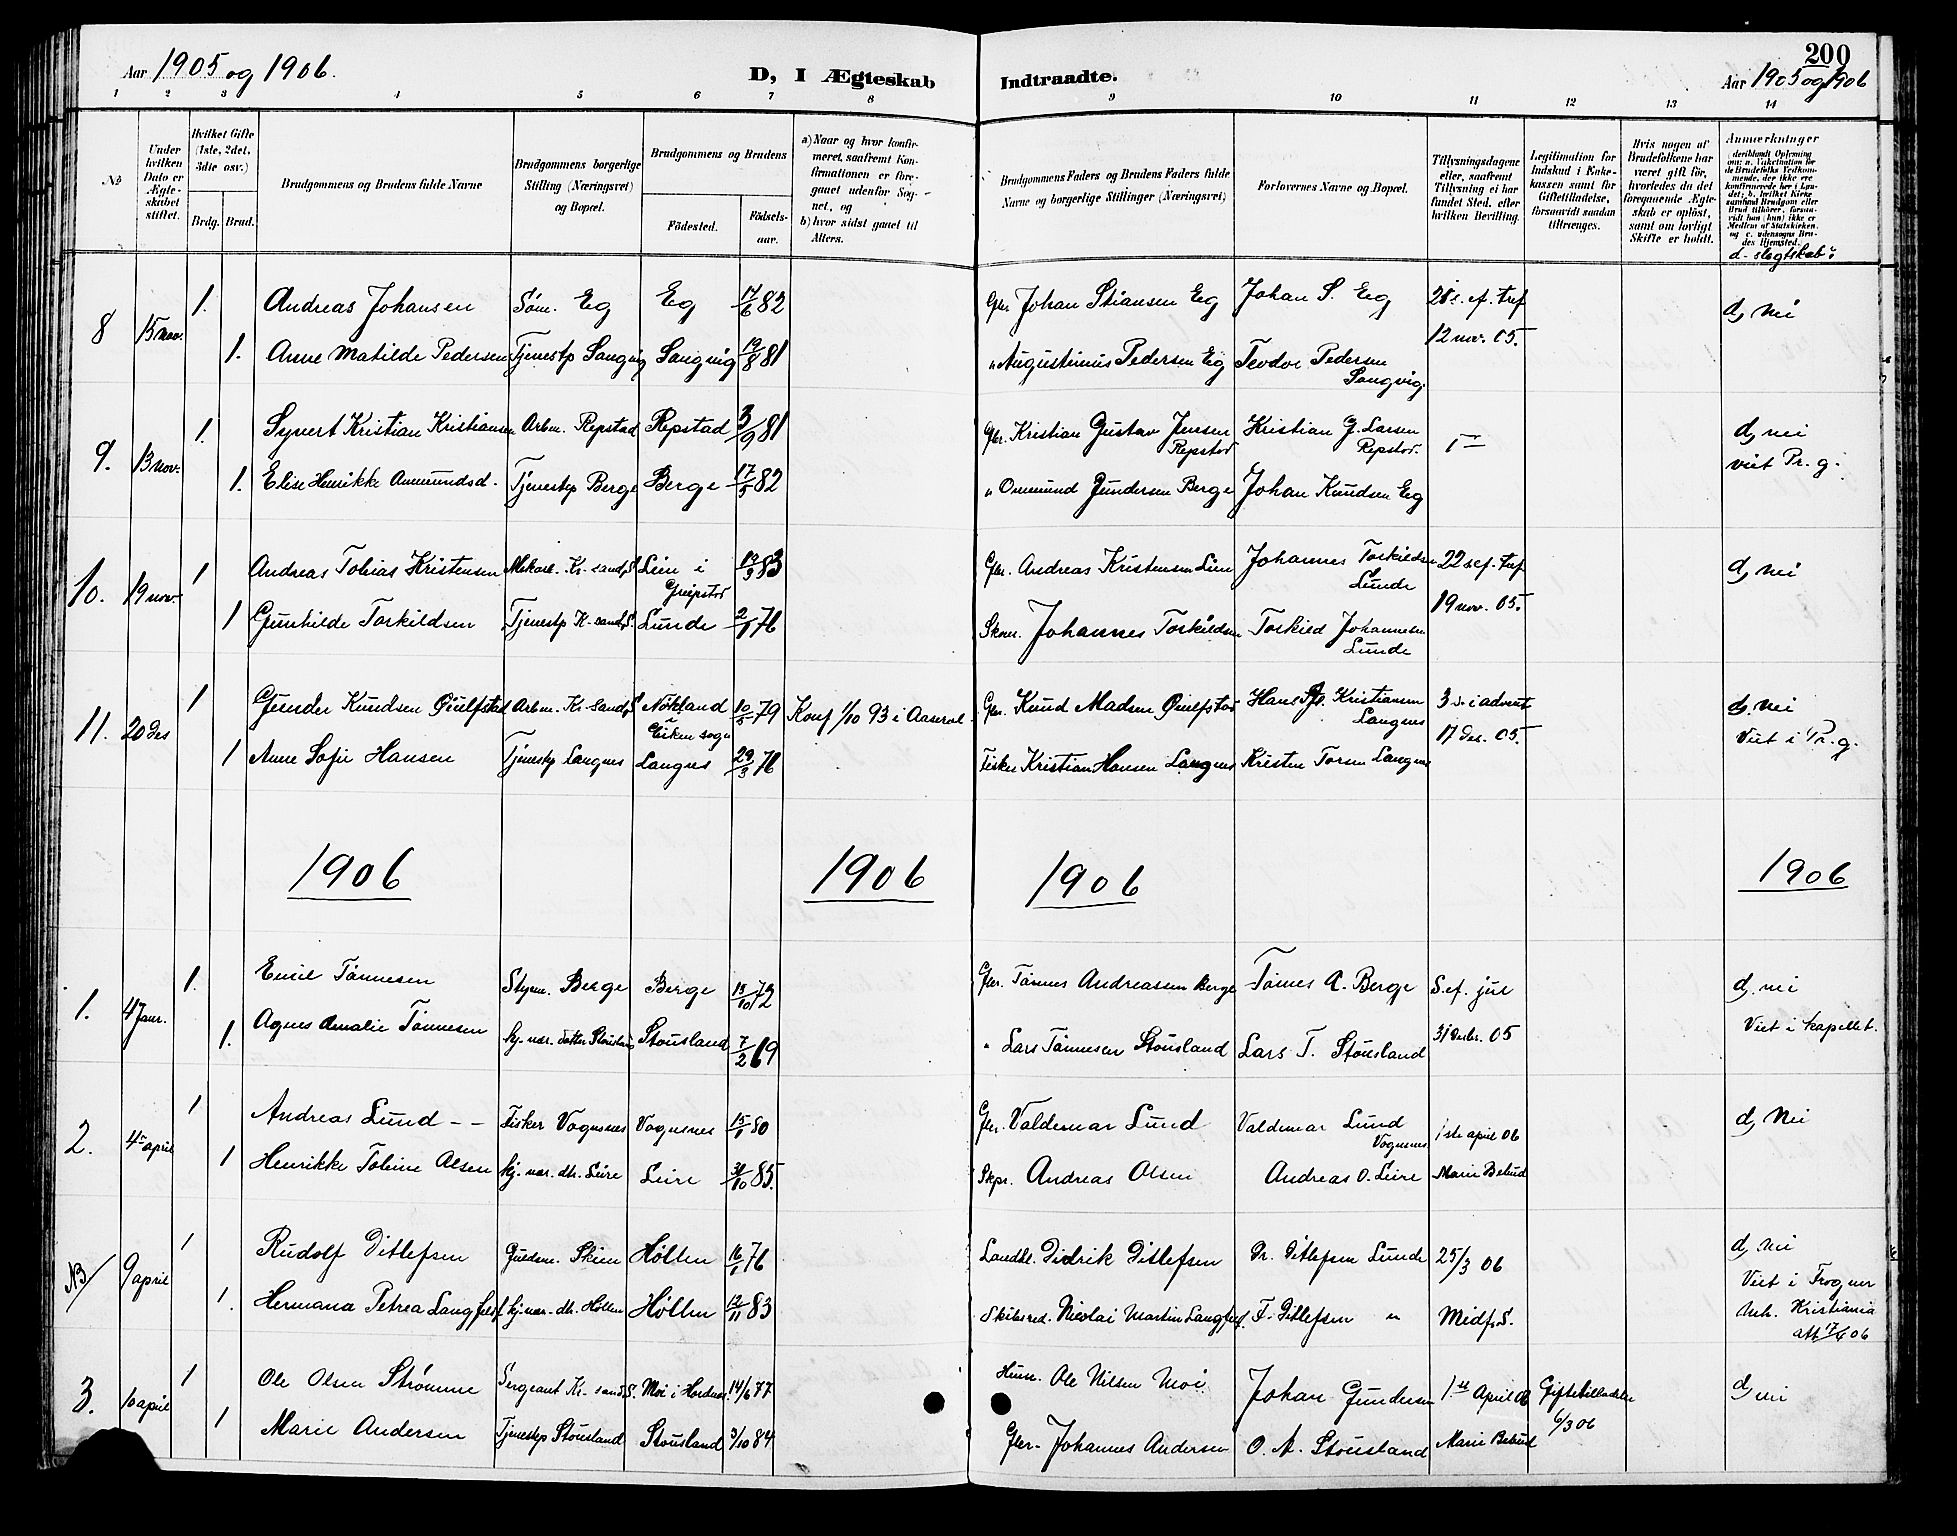 200
Aar 1905 og 1906.
D, I Ægteskab
Indtraadte.
Aar 1905 og 1906
1 2 3 4 5 6 7 8 9 10 11 12 13 14
№
Under hvilken Dato er Ægteskabet stiftet.
Hvilket Gifte (1ste, 2det, 3die osv.)
Brdg. Brud.
Brudgommens og Brudens fulde Navne
Brudgommens borgerlige Stilling (Næringsvei) og Bopæl.
Brudgommens og Brudens
Födested.
Födsels-aar.
a) Naar og hvor konfirmeret, saafremt Konfirmationen er foregaaet udenfor Sognet, og
b) hvor sidst gaaet til Alters.
Brudgommens Faders og Brudens Faders fulde Navne og borgerlige Stillinger (Næringsvei)
Forlovernes Navne og Bopæl.
Tillysningsdagene eller, saafremt Tillysning ei har fundet Sted, efter hvilken Bevilling.
Legitimation for Indskud i Enkekassen samt for Giftetilladelse, forsaavidt saadan tiltrænges.
Hvis nogen af Brudefolkene har været gift för, hvorledes da det foregaaende Ægteskab er oplöst, samt om lovligt Skifte er holdt.
Anmærkninger
d- slegtskab?
8 15 nov. 1. Andreas Johansen Søm. Eg Eg 17/6 82 Gbr. Johan Stiansen Eg Johan S. Eg d, nei
1. Anne Matilde Pedersen Tjenestp Langvig 19/8 81 " Augustinus Pedersen Eg Teodor Pedersen 12 nov. 05.
9. 13 nov. 1. Syvert Kristian Kristiansen Arbm. Repstad Repstad 3/9 81 Gbr. Kristian Gustav Jensen Repstad Kristian G. Larsen Repstad. d, nei
1. Elise Henrikke Tjenestp Berge Berge 17/5 82 " Ommund Gundersen Berge Johan Knudsen Eg viet Pr. g.
10. 19 nov. 1 Andreas Tobias Kristensen Gbr. Andreas Kristensen Johannes Torkildsen Lunde 22 s. ef. tref d, nei
1 Gunhilde Torkildsen Tjenestp K-sand, S. Lunde 2/1 76 Johannes Torkildsen Torkild Johannesen Lunde 19 nov. 05.
11. 20 des 1 Gunder Knudsen Arbm. Kr-sand, S 10/5 79 Konf 1/10 93 i Aaseral Gbr. Knud Madsen Kristiansen Langnes 3 s. i advent d, nei
1 Anne Sofie Hansen Tjenestp Langnes Langnes 29/3 76 Fisker Kristian Hansen Langnes Kristen Torsen Langnes 17 des. 05. Viet i Pr. g.
1906 1906 1906 1906
1. 4 Janr. 1. Emil Tønnesen Styrm. Berge Berge 15/10 72 Gbr. Tønnes Andreassen Berge Tønnes A. Berge S. ef. jul d, nei
1. Agnes Amalie Tønnesen hj. vær. datter Stousland Stousland 7/2 69 " Lars Tønnesen Stousland Lars T. Stousland 31 Desbr. 05 Viet i kapellet.
2. 4 april 1 Andreas Lund Fisker Vognsnes Vognsnes 15/1 80 Gbr. Valdemar Lund Valdemar Lund Vognsnes 1ste april 06 d, Nei
1 Henrikke Tobine Olsen hj. vær. dtr. Leire Leire 85. Skpr. Andreas Olsen Andreas O. Leire Marie Bebud
NB 9 april 1 Rudolf Ditlefsen Guldsm. Skien Høllen 16/1 76 Landhl. Didrik Ditlefsen Dr. Ditlefsen Lunde 25/3 06 d, nei
1. Hermana Petrea Langfeldt hj. vær. dtr. Høllen Høllen 12/11 83 Skibsred. Nicolai Martin Langfeldt. F. Ditlefsen " Midf. S. Viet i Frogner Kristiania att 17/4 06
3. 10 april 1 Ole Olsen Strømme Sergeant Kr. sand, S. Moi i 14/6 77 Husm. Ole Nilsen Moi Johan Gundersen 1ste April 06 Giftetilladelse 6/3 06 d, nei
1 Marie Andersen Tjenestp Stousland Stousland 3/10 84 Gbr. Johannes Andersen O. A. Stousland Marie Bebud